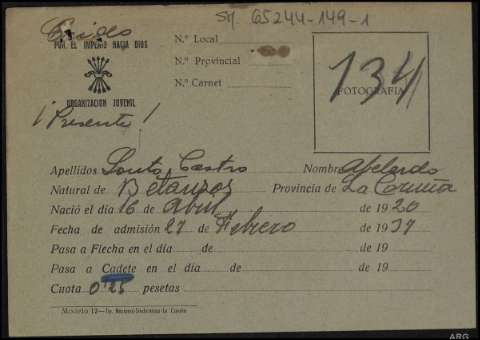 Sig 65244-149-1
Caídos
POR EL IMPERIO HACIA DIOS
ORGANIZACION JUVENIL
¡Presente!
N.º Local
N.º Provincial
N.º Carnet
FOTOGRAFIA
134
Apellidos Souto Castro Nombre Abelardo
Natural de Betanzos Provincia de La Coruña
Nació el día 16 de abril de 1920
Fecha de admisión 27 de Febrero de 1937
Pasa a Flecha en el día de de 19
Pasa a Cadete en el día de de 19
Cuota 0'25 pesetas
Modelo 12
ARG